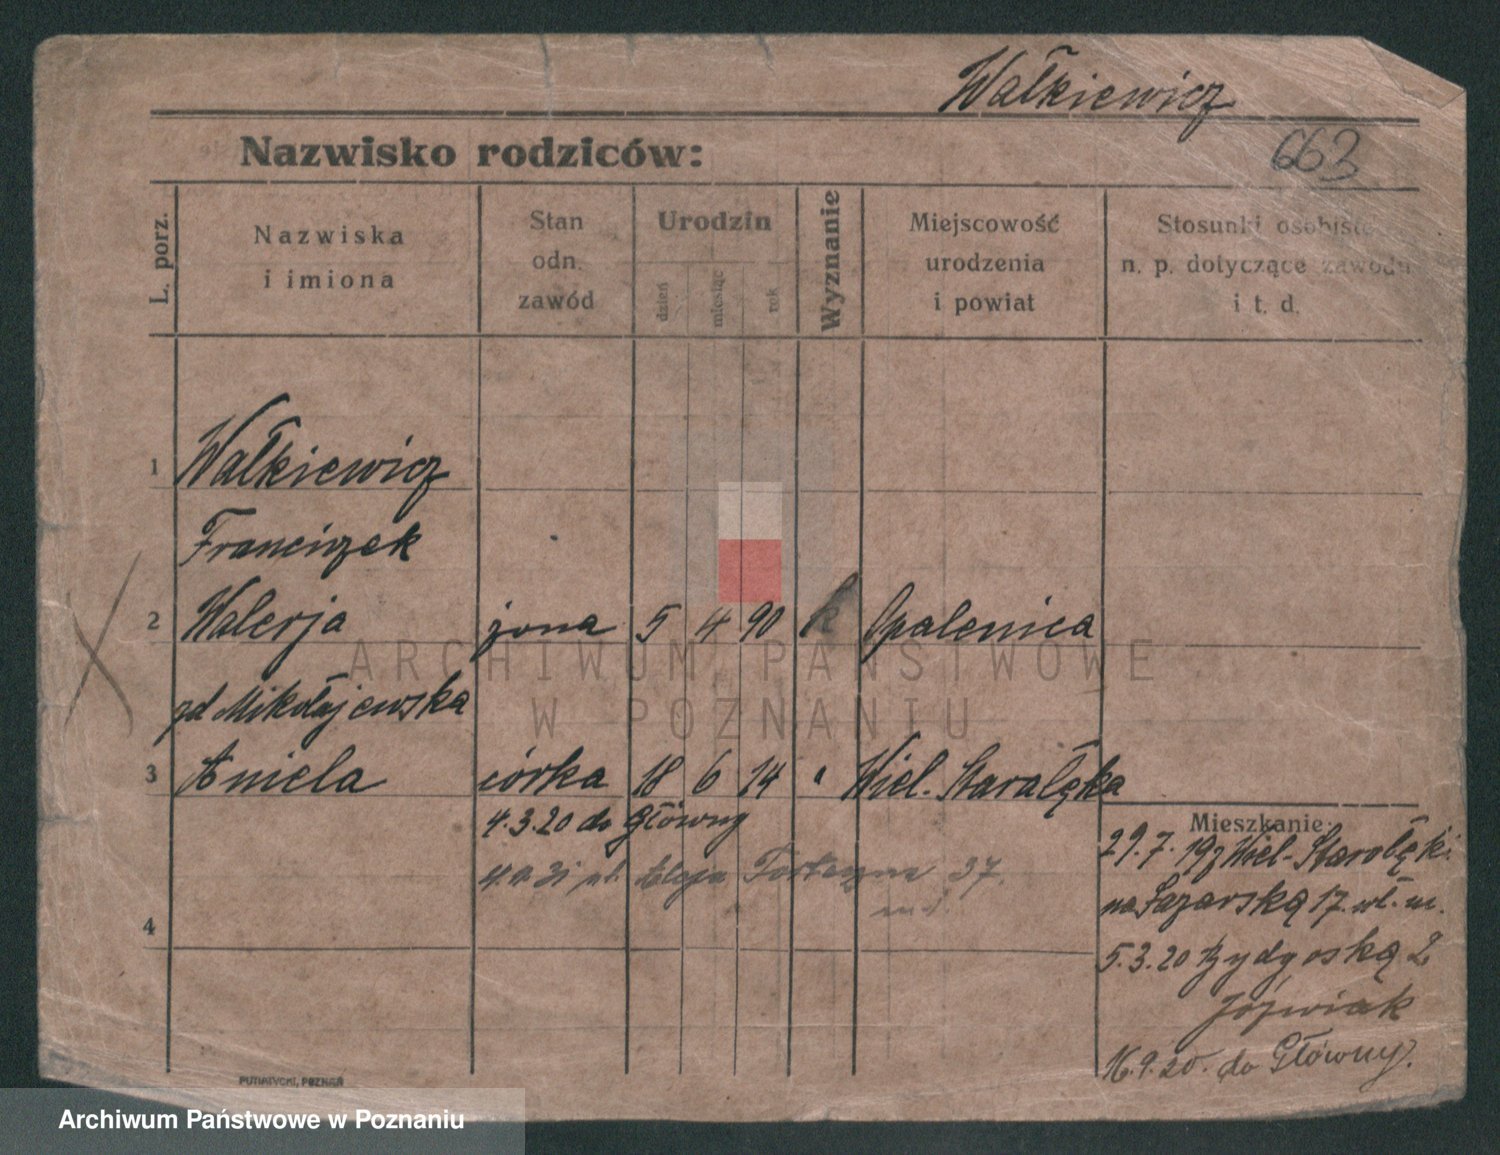 Wałkiewicz
663
Nazwisko rodziców:
L. porz.
Nazwiska
i imiona
Stan
odn.
zawód
Urodzin
dzień
miesiąc
rok
Wyznanie
Miejscowość
urodzenia
i powiat
Stosunki osobiste
n. p. dotyczące zawodu
i t. d.
1 Wałkiewicz
Franciszek
2 Walerja żona 5 4 90 k Opalenica
zd Mikołajewska
3 Aniela córka 18 6 14 " Wiel. Starałęka
4.3.20 do Główny
37
4
Mieszkanie:
29.7.19 z Wiel-Starołęki
na Łazarską 17. wł. m.
5.3.20 Bydgoską 2
Jóźwiak
16.9.20. do Główny.
PUTIATYCKI, POZNAŃ
ARCHIWUM PAŃSTWOWE
W POZNANIU
Archiwum Państwowe w Poznaniu